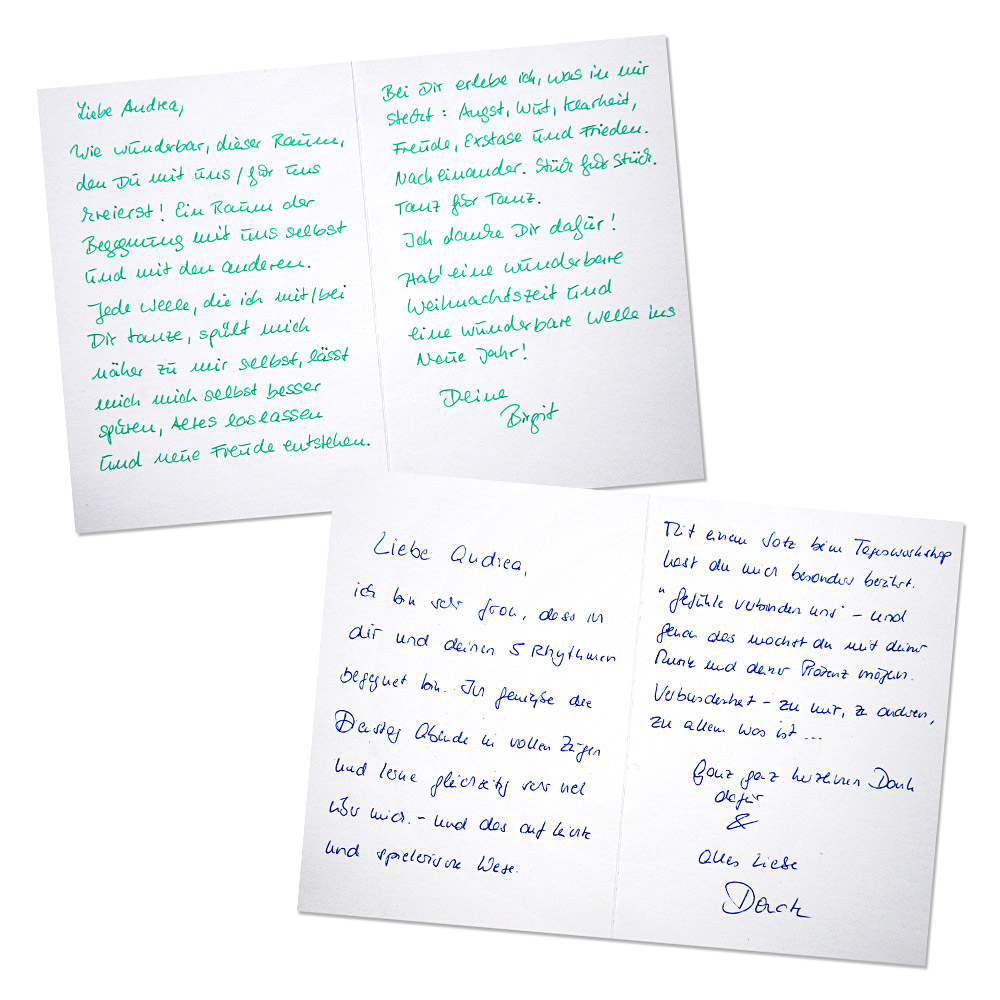 Liebe Andrea,
Wie wunderbar, dieser Raum,
den Du mit uns / für uns
kreierst! Ein Raum der
Begegnung mit uns selbst
und mit den anderen.
Jede Welle, die ich mit/bei
Dir tanze, spült mich
näher zu mir selbst, lässt
mich mich selbst besser
spüren, Altes loslassen
und neue Freude entstehen.
Bei Dir erlebe ich, was in mir
steckt: Angst, Wut, Klarheit,
Freude, Exstase und Frieden.
Nacheinander. Stück für Stück.
Tanz für Tanz.
Ich danke Dir dafür!
Hab' eine wunderbare
Weihnachtszeit und
eine wunderbare Welle ins
Neue Jahr!
Deine
Birgit
Liebe Andrea,
ich bin sehr froh, dass ich
dir und deinen 5 Rhythmen
begegnet bin. Ich genieße die
Dienstag Abende in vollen Zügen
und lerne gleichzeitig sehr viel
über mich. - und das auf leichte
und spielerische Weise.
Mit einem Satz beim Tagesworkshop
hast du mich besonders berührt.
"Gefühle verbinden uns" - und
genau das machst du mit deiner
Musik und deiner Präsenz möglich.
Verbundenheit - zu mir, zu anderen,
zu allem was ist ...
Ganz ganz herzlichen Dank
dafür
&
alles Liebe